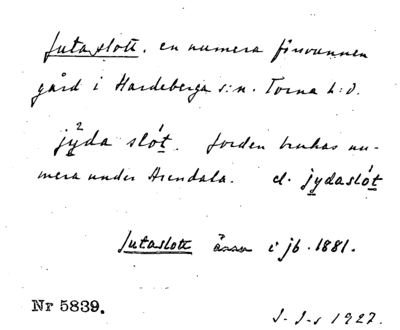 Jutaslott. en numera försvunnen
gård i Hardeberga s:n. Torna h:d.
jy̤da slót. Jorden brukas nu-
mera under Arendala. el. jydaslót
Jutaslott ännu i jb. 1881.
Nr 5839.
1927.